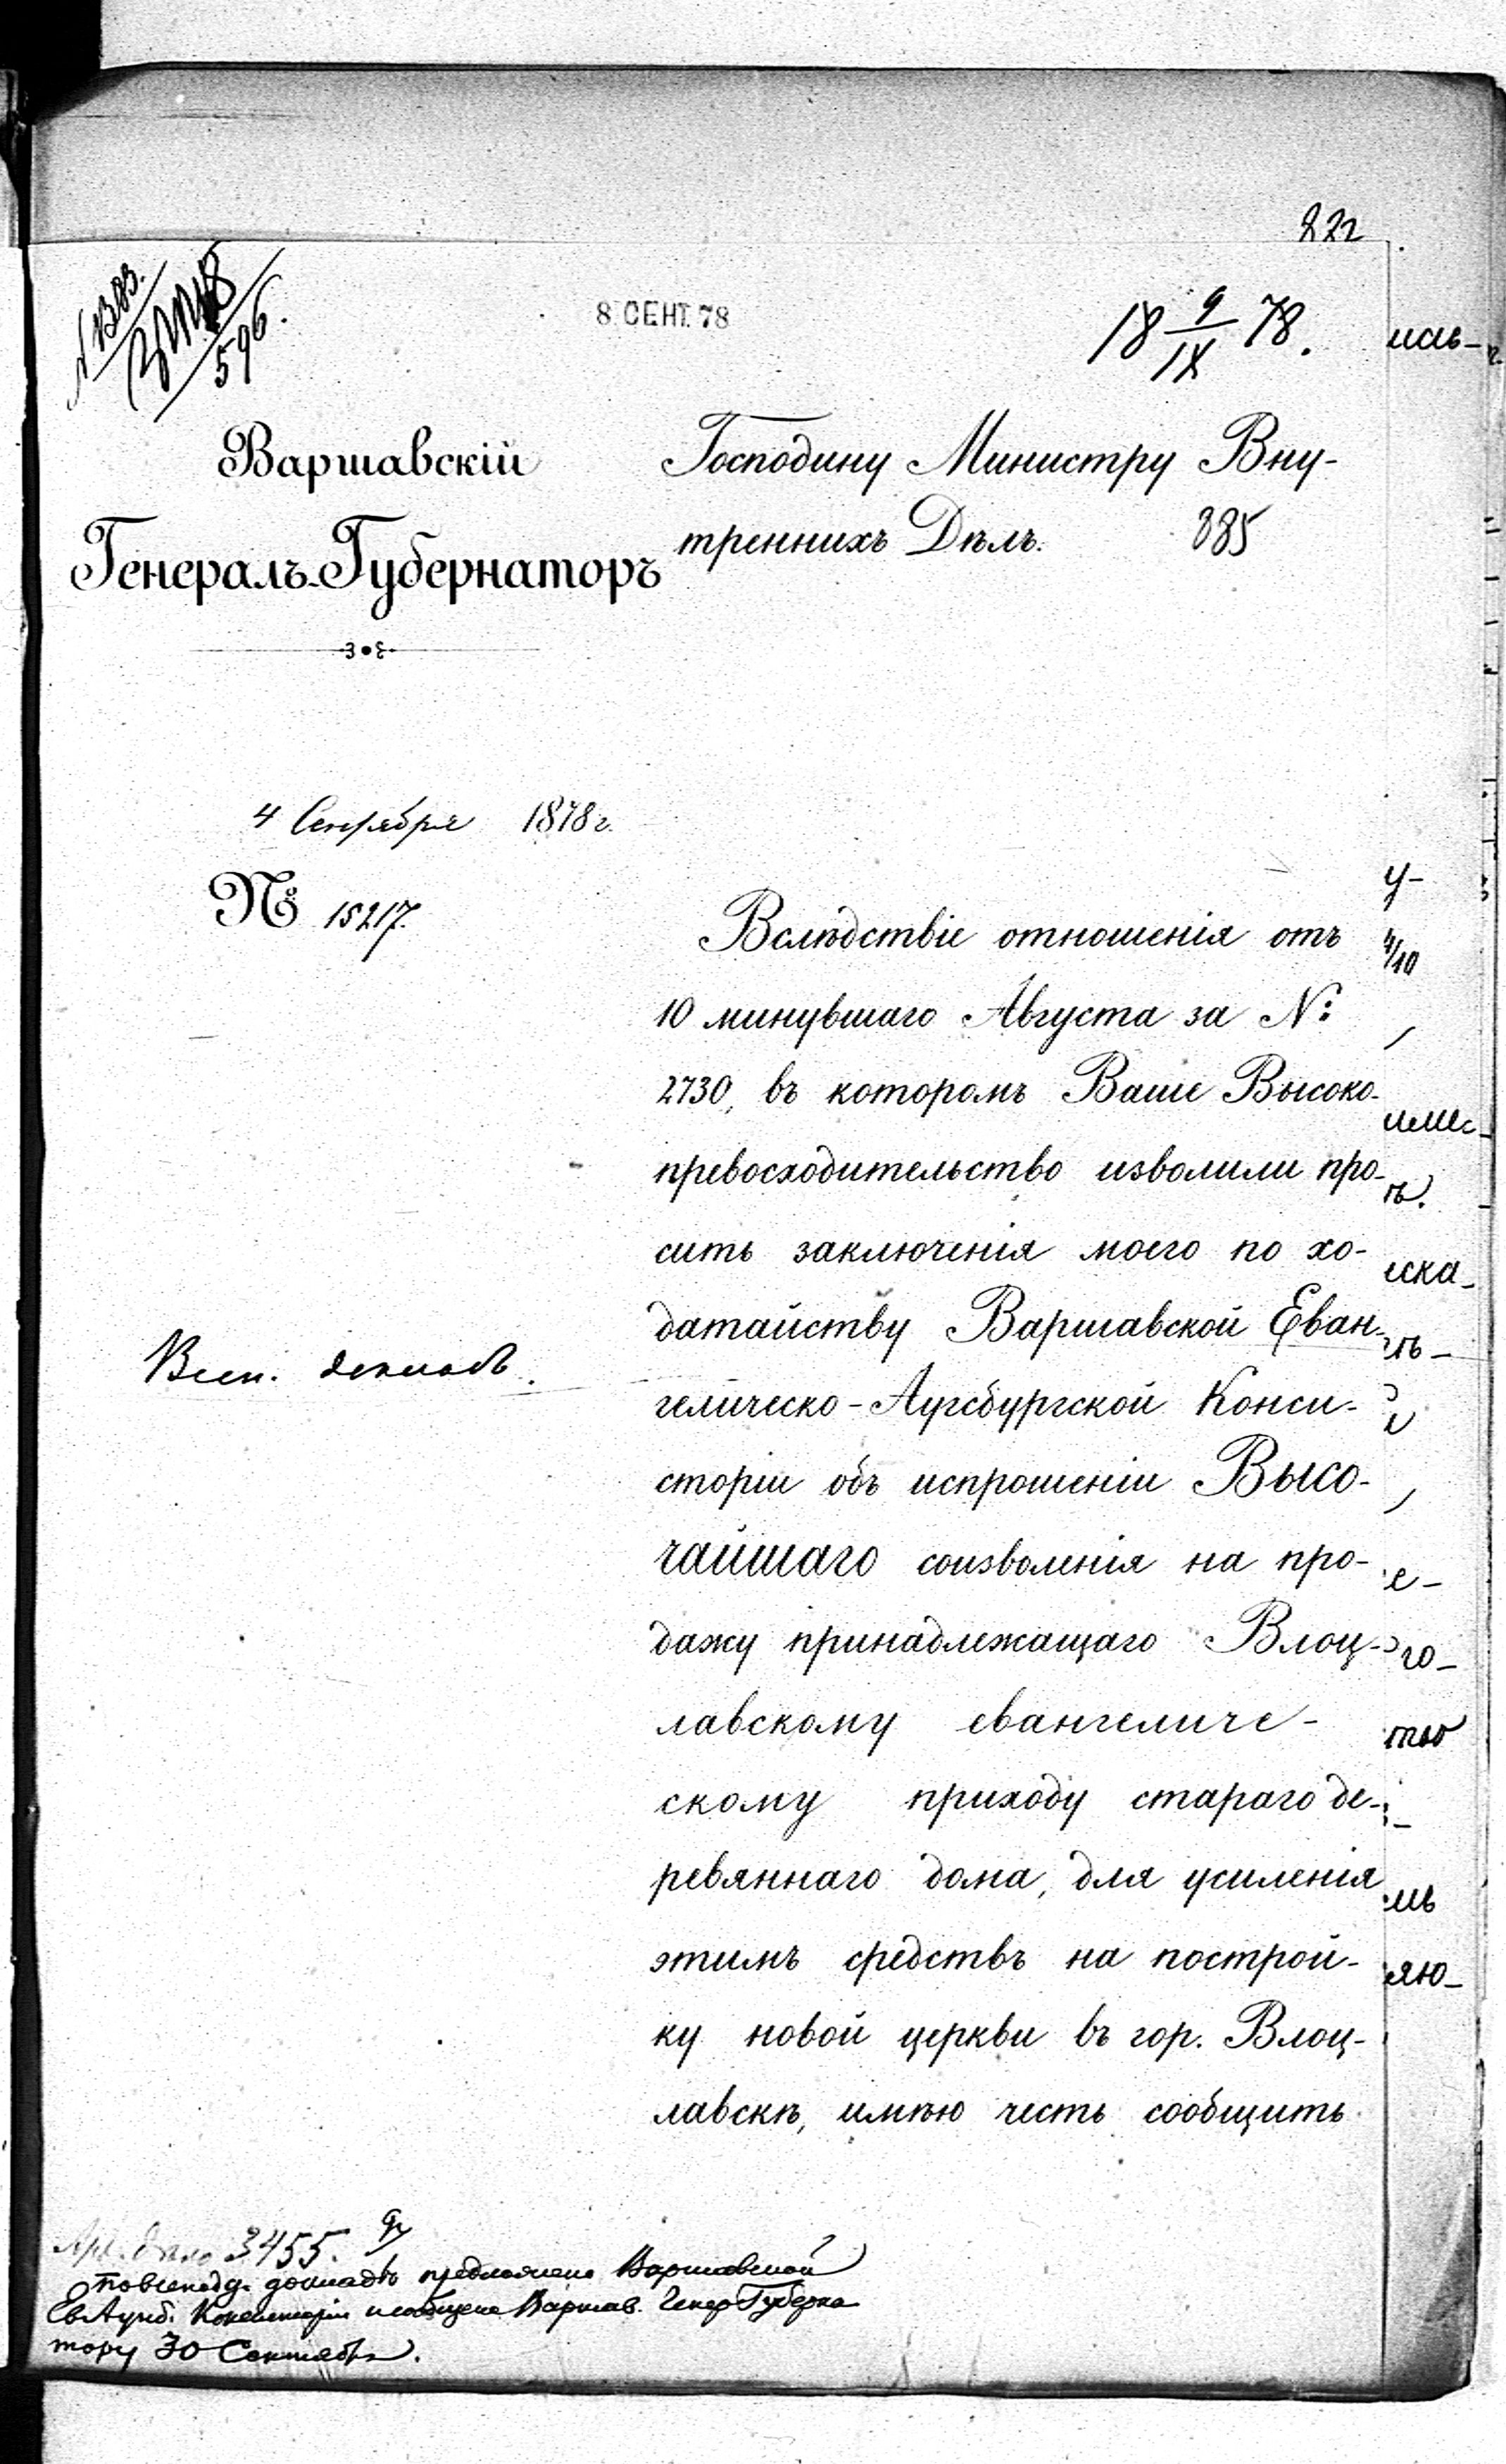 222
8 СЕНТ. 78
18 9/IX 78.
596.
Варшавскій
Генералъ-Губернаторъ
Господину Министру Вну-
треннихъ Дѣлъ.
885
4 Сентября 1878 г.
№ 15217.
Вслѣдствіе отношенія отъ
10 минувшаго Августа за №:
2730, въ которомъ Ваше Высоко-
превосходительство изволили про-
сить заключенія моего по хо-
датайству Варшавской Еван-
гелическо-Аугсбургской Конси-
сторіи объ испрошеніи Высо-
чайшаго соизволенія на про-
дажу принадлежащаго Влоц-
лавскому евангеличе-
скому приходу стараго де-
ревяннаго дома, для усиленія
этимъ средствъ на построй-
ку новой церкви въ гор. Влоц-
лавскѣ, имѣю честь сообщить
Всеп. докладъ.
3455.
докладъ предложено Варшавской
Консисторіи и сообщено Варшав. Генер Губерна
тору 30 Сентября.